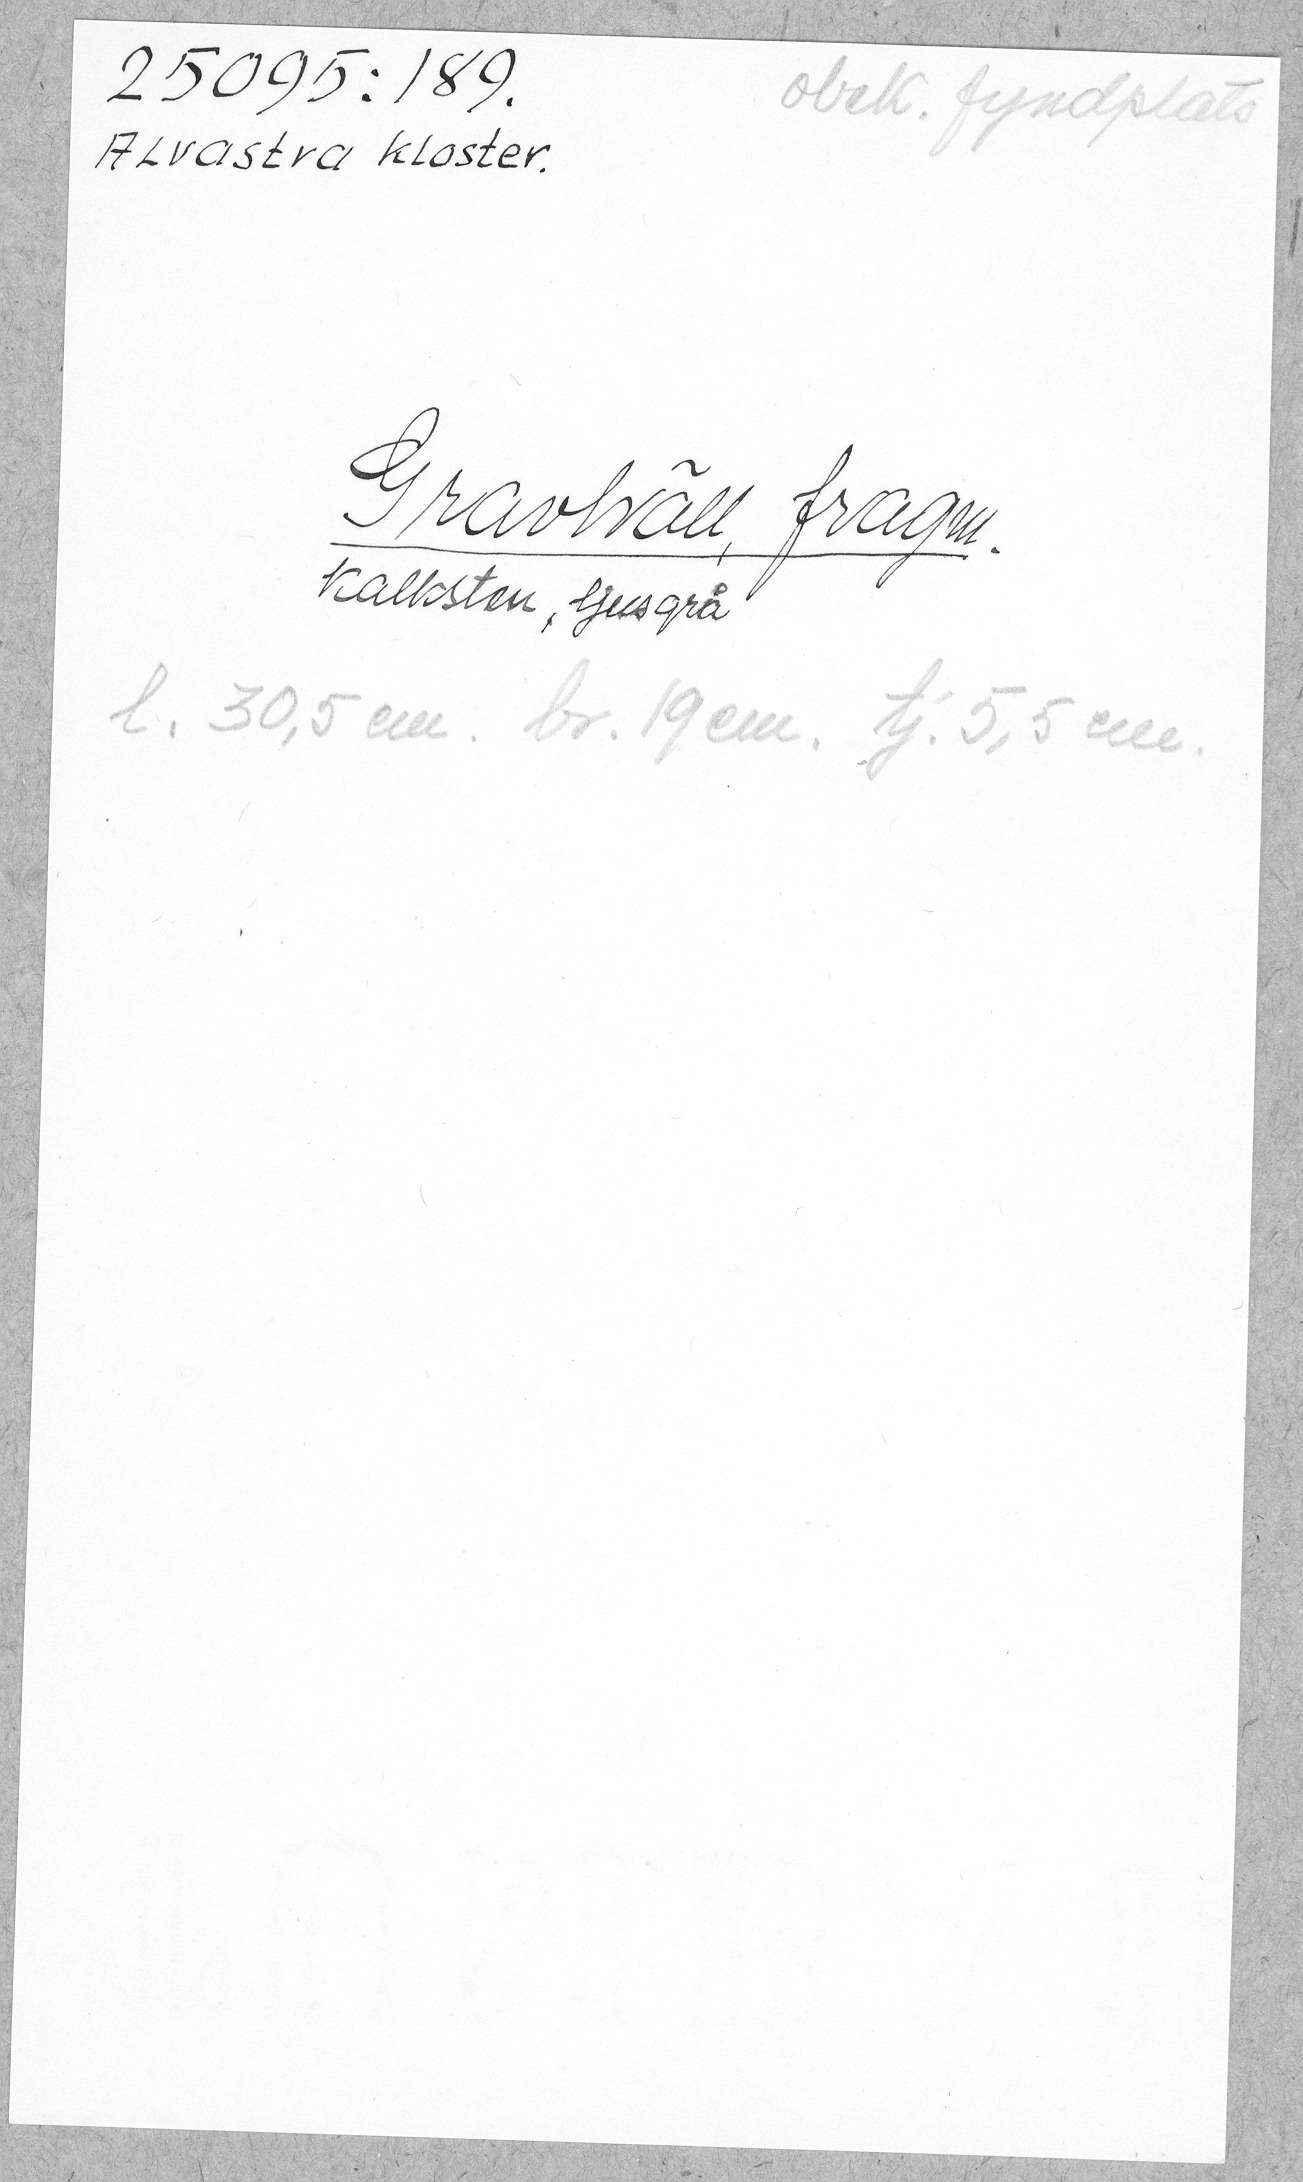 25095:189.
obek. fyndplats
Alvastra kloster.
Gravhäll, fragm.
Kalksten, ljusgrå
l. 30,5 cm. br. 19 cm. tj. 5,5 cm.